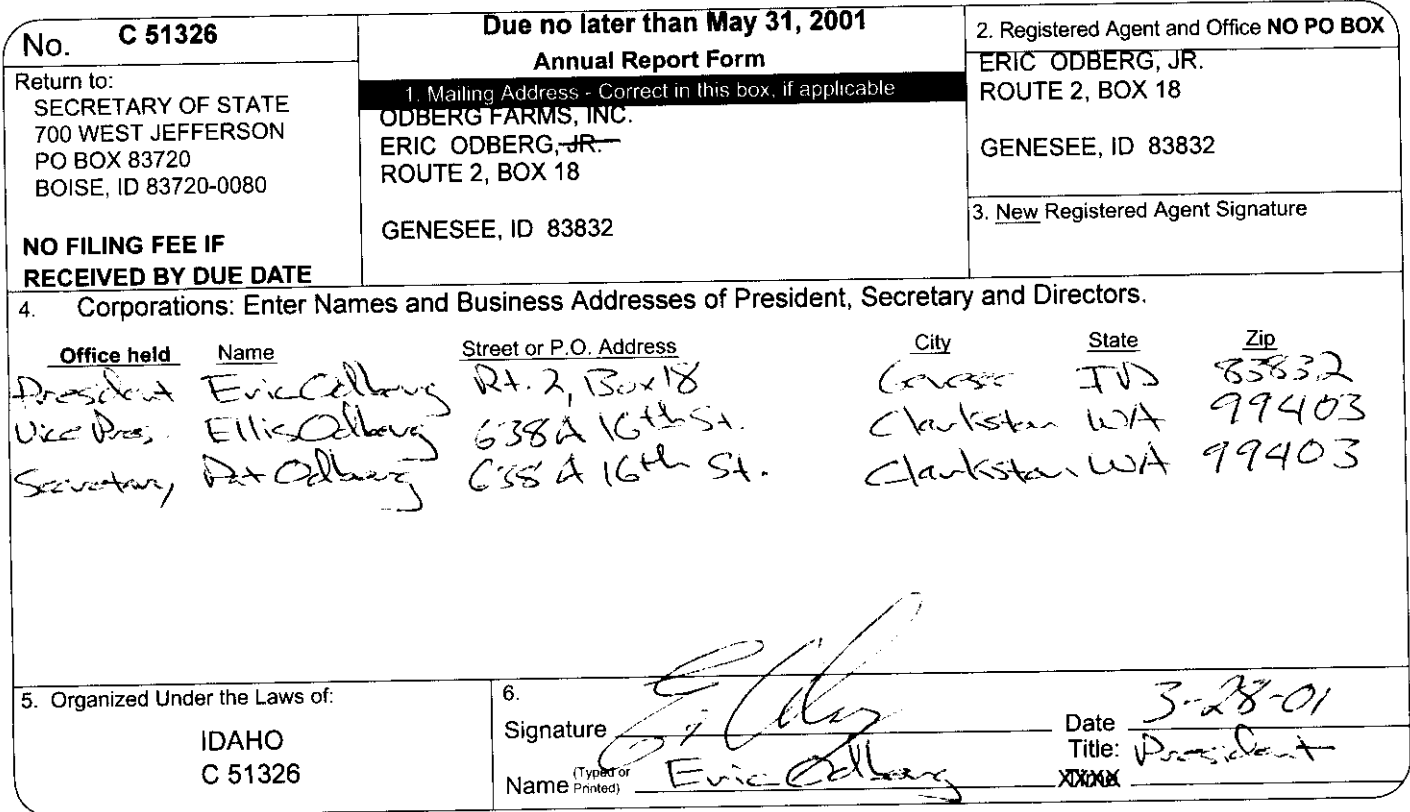 No. C 51326
Return to:
SECRETARY OF STATE
700 WEST JEFFERSON
PO BOX 83720
BOISE, ID 83720-0080
NO FILING FEE IF
RECEIVED BY DUE DATE
Due no later than May 31, 2001
Annual Report Form
1. Mailing Address - Correct in this box, if applicable
ODBERG FARMS, INC.
ERIC ODBERG, JR.
ROUTE 2, BOX 18
GENESEE, ID 83832
2. Registered Agent and Office NO PO BOX
ERIC ODBERG, JR.
ROUTE 2, BOX 18
GENESEE, ID 83832
3. New Registered Agent Signature
4. Corporations: Enter Names and Business Addresses of President, Secretary and Directors.
Office held Name Street or P.O. Address City State Zip
President Eric Odberg Rt. 2, Box 18 Genesee ID 83832
Vice Pres. Ellis Odberg 638A 16th St. Clarkston WA 99403
Secretary Pat Odberg 638A 16th St. Clarkston WA 99403
5. Organized Under the Laws of:
IDAHO
C 51326
6.
Signature
Date 3-28-01
Name (Typed or Printed) Eric Odberg
Title: President